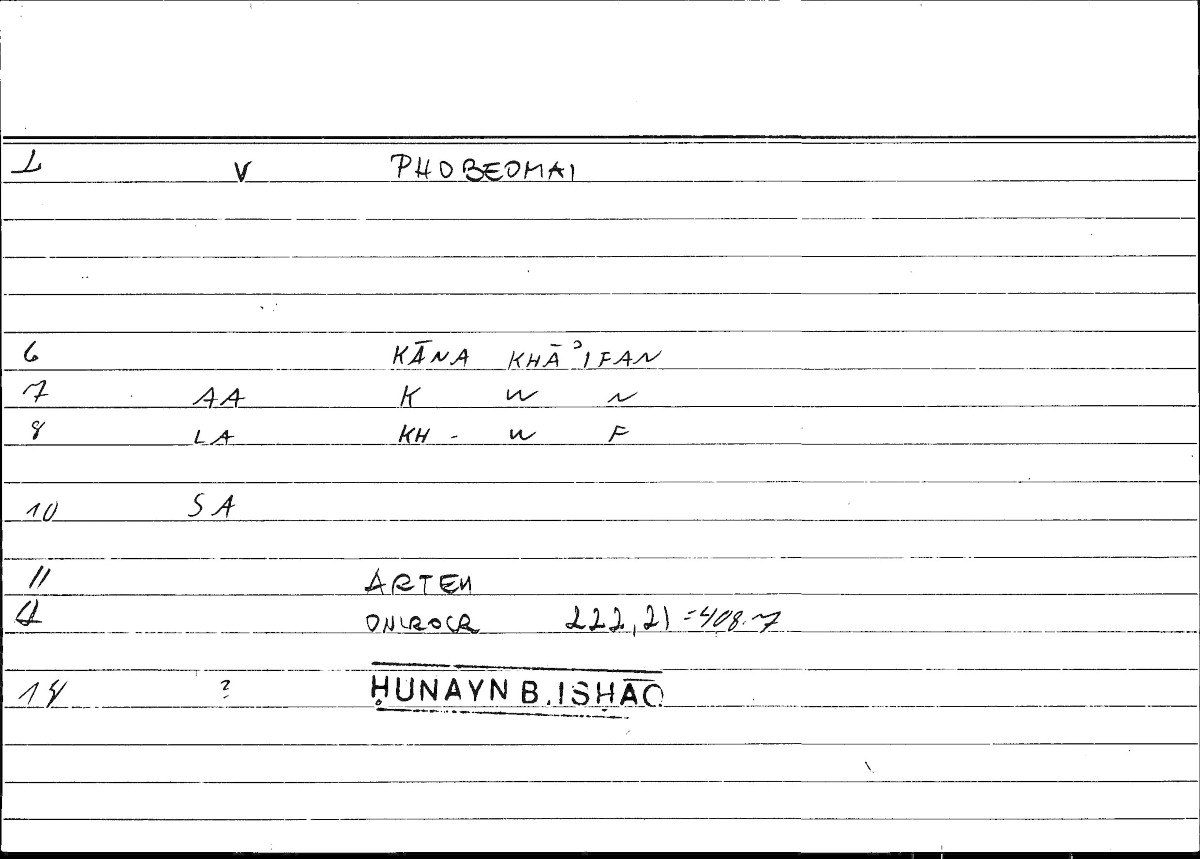 1 V PHOBEOMAI
6 KĀNA KHĀʾIFAN
7 AA K W N
8 LA KH - W F
10 SA
11 ARTEM
ONIROCR 222,21 = 408.7
14 ? ḤUNAYN B. ISḤĀQ